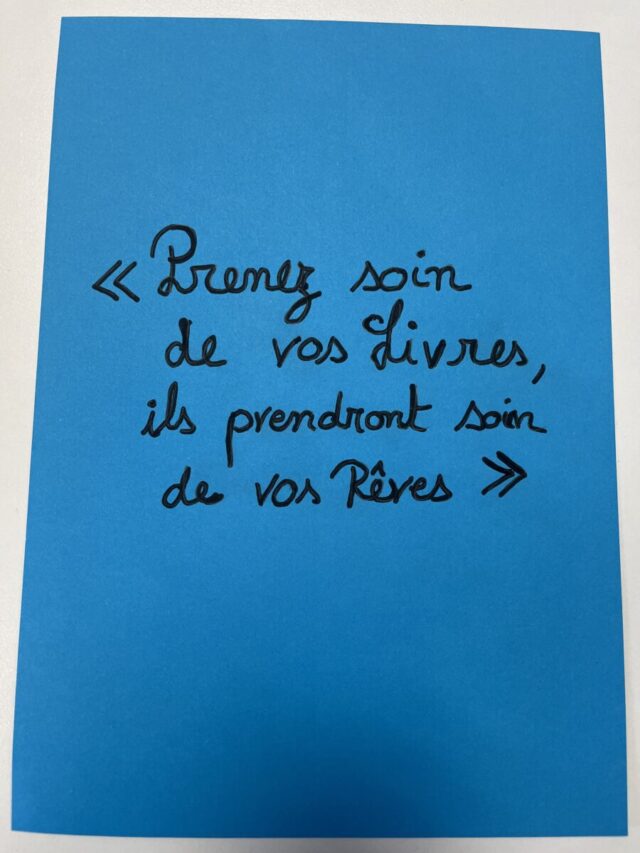 « Prenez soin
de vos Livres,
ils prendront soin
de vos Rêves »